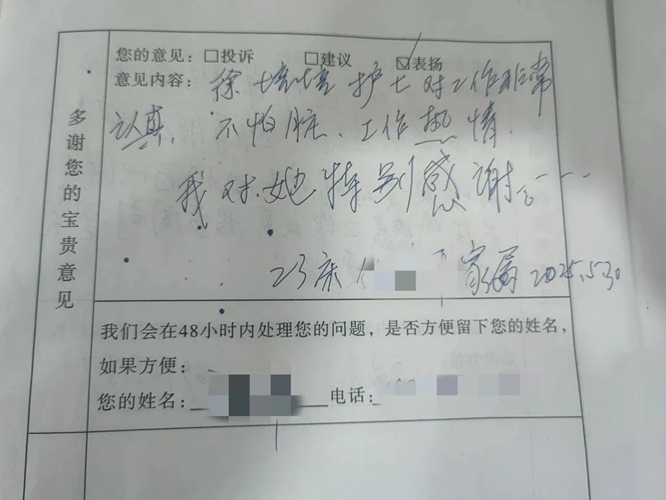 多谢您的宝贵意见
您的意见：□投诉 □建议 ☑表扬
意见内容：徐培培护士对工作非常
认真，不怕脏、工作热情，
我对她特别感谢。
23床 家属 2025.5.30
我们会在48小时内处理您的问题，是否方便留下您的姓名，
如果方便：
您的姓名： 电话：